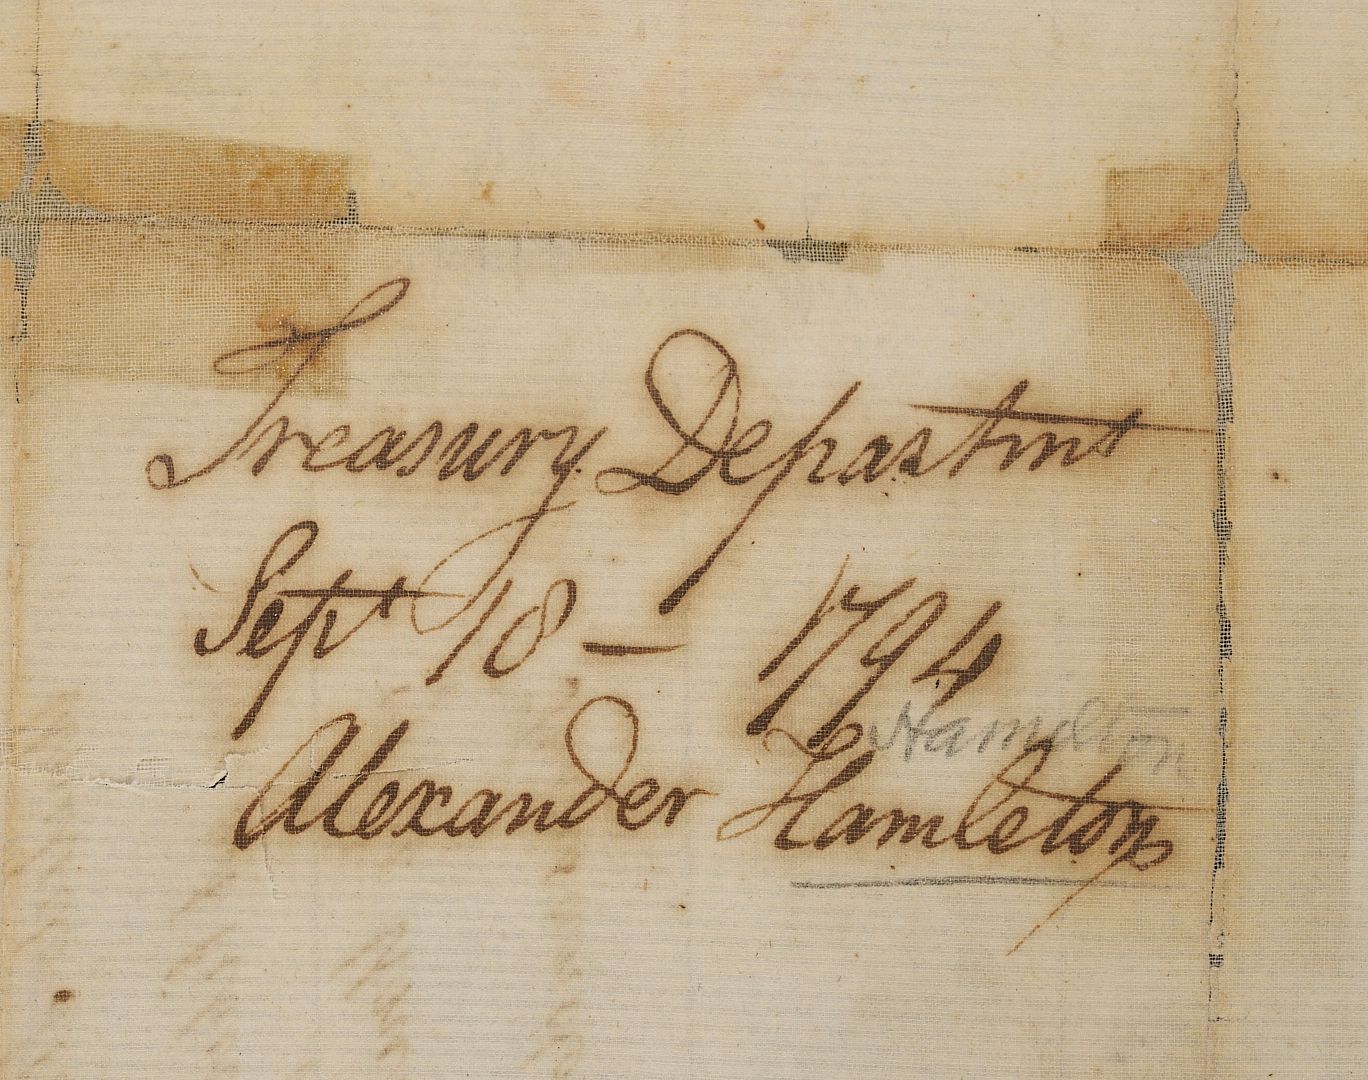 Treasury Departmt
Sept 18 — 1794
Hamilton
Alexander Hamleton